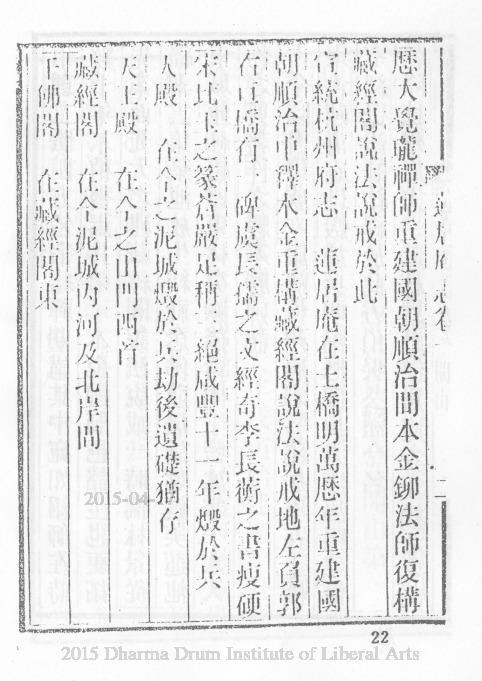 蓮居庵志卷一 二
歷大覺瓏禪師重建國朝順治間本金鉚法師復構
藏經閣說法說戒於此
宣統杭州府志　蓮居庵在土橋明萬歷年重建國
朝順治中釋本金重構藏經閣說法說戒地左負郭
右亘橋有一碑虞長孺之文經奇李長蘅之書瘦硬
宋比玉之篆蒼嚴足稱三絕咸豐十一年燬於兵
大殿　在今之泥城燬於兵劫後遺礎猶存
天王殿　在今之山門西首
藏經閣　在今泥城內河及北岸間
千佛閣　在藏經閣東
2015-04-
22
2015 Dharma Drum Institute of Liberal Arts